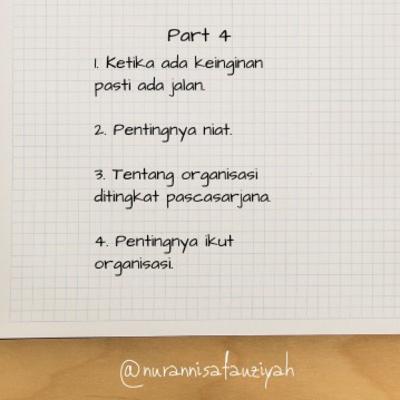 Part 4
1. Ketika ada keinginan
pasti ada jalan.
2. Pentingnya niat.
3. Tentang organisasi
ditingkat pascasarjana.
4. Pentingnya ikut
organisasi.
@nurannisafauziyah